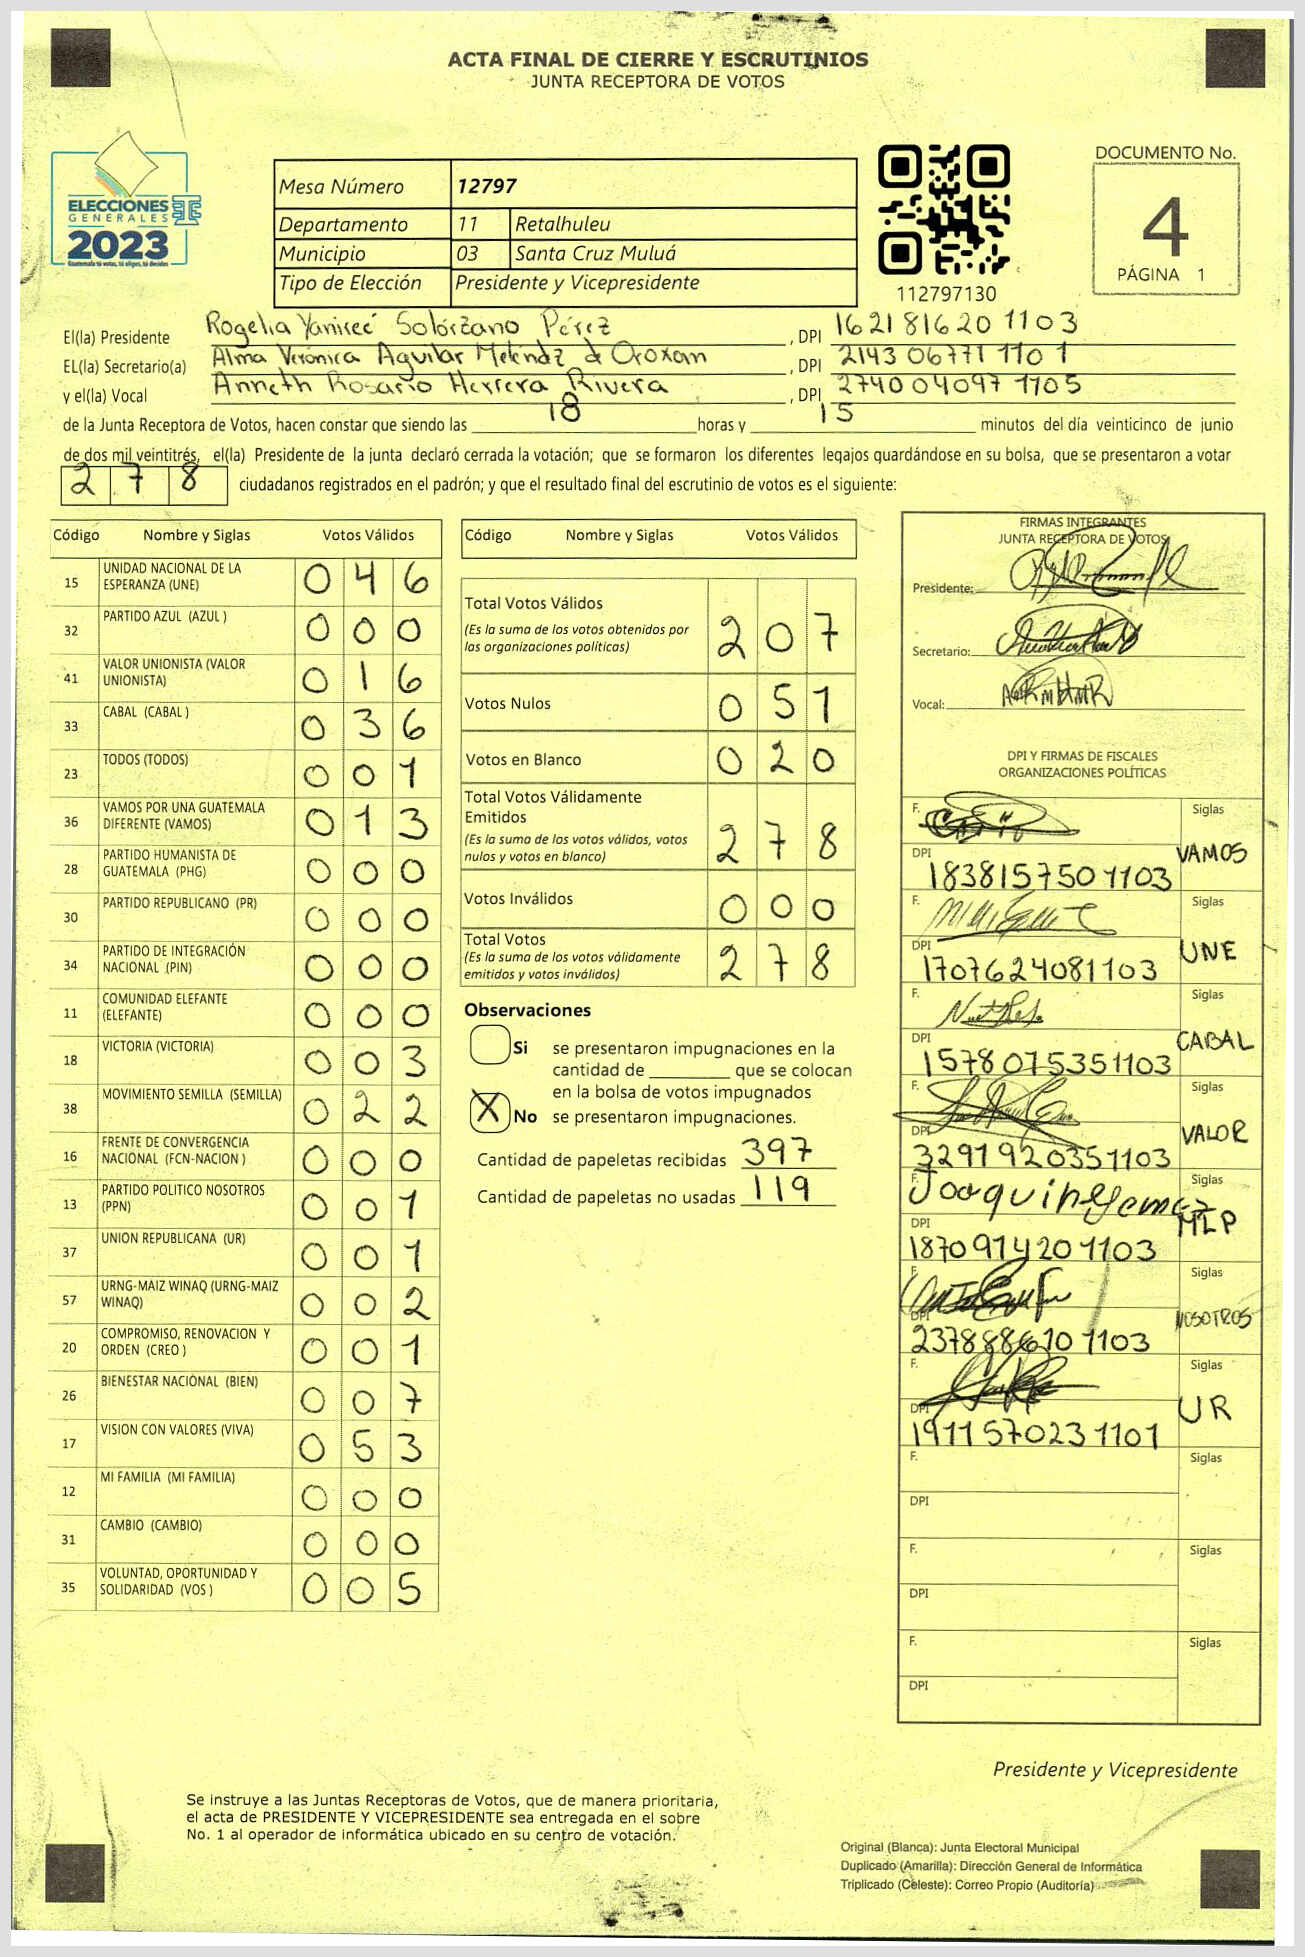 ACTA FINAL DE CIERRE Y ESCRUTINIOS
JUNTA RECEPTORA DE VOTOS
ELECCIONES
GENERALES
2023
Guatemala tú votas, tú eliges, tú decides
Mesa Número 12797
Departamento 11 Retalhuleu
Municipio 03 Santa Cruz Muluá
Tipo de Elección Presidente y Vicepresidente
112797130
DOCUMENTO No.
4
PÁGINA 1
El(la) Presidente Rogelia Yanireé Solórzano Pérez , DPI 1621816201103
EL(la) Secretario(a) Alma Verónica Aguilar Meléndz d Oroxom , DPI 2143067711101
y el(la) Vocal Anneth Rosario Herrera Rivera , DPI 2740040971105
de la Junta Receptora de Votos, hacen constar que siendo las 18 horas y 15 minutos del día veinticinco de junio
de dos mil veintitrés, el(la) Presidente de la junta declaró cerrada la votación; que se formaron los diferentes legajos guardándose en su bolsa, que se presentaron a votar
278 ciudadanos registrados en el padrón; y que el resultado final del escrutinio de votos es el siguiente:
Código Nombre y Siglas Votos Válidos
15 UNIDAD NACIONAL DE LA ESPERANZA (UNE) 046
32 PARTIDO AZUL (AZUL ) 000
41 VALOR UNIONISTA (VALOR UNIONISTA) 016
33 CABAL (CABAL ) 036
23 TODOS (TODOS) 001
36 VAMOS POR UNA GUATEMALA DIFERENTE (VAMOS) 013
28 PARTIDO HUMANISTA DE GUATEMALA (PHG) 000
30 PARTIDO REPUBLICANO (PR) 000
34 PARTIDO DE INTEGRACIÓN NACIONAL (PIN) 000
11 COMUNIDAD ELEFANTE (ELEFANTE) 000
18 VICTORIA (VICTORIA) 003
38 MOVIMIENTO SEMILLA (SEMILLA) 022
16 FRENTE DE CONVERGENCIA NACIONAL (FCN-NACION ) 000
13 PARTIDO POLITICO NOSOTROS (PPN) 001
37 UNION REPUBLICANA (UR) 001
57 URNG-MAIZ WINAQ (URNG-MAIZ WINAQ) 002
20 COMPROMISO, RENOVACION Y ORDEN (CREO ) 001
26 BIENESTAR NACIONAL (BIEN) 007
17 VISION CON VALORES (VIVA) 053
12 MI FAMILIA (MI FAMILIA) 000
31 CAMBIO (CAMBIO) 000
35 VOLUNTAD, OPORTUNIDAD Y SOLIDARIDAD (VOS ) 005
Código Nombre y Siglas Votos Válidos
Total Votos Válidos 207
(Es la suma de los votos obtenidos por
las organizaciones políticas)
Votos Nulos 051
Votos en Blanco 020
Total Votos Válidamente
Emitidos 278
(Es la suma de los votos válidos, votos
nulos y votos en blanco)
Votos Inválidos 000
Total Votos 278
(Es la suma de los votos válidamente
emitidos y votos inválidos)
Observaciones
Si se presentaron impugnaciones en la
cantidad de ________ que se colocan
en la bolsa de votos impugnados
X No se presentaron impugnaciones.
Cantidad de papeletas recibidas 397
Cantidad de papeletas no usadas 119
FIRMAS INTEGRANTES
JUNTA RECEPTORA DE VOTOS
Presidente:
Secretario:
Vocal:
DPI Y FIRMAS DE FISCALES
ORGANIZACIONES POLÍTICAS
F. Siglas
DPI 1838157501103 VAMOS
F. Siglas
DPI 1707624081103 UNE
F. Siglas
DPI 1578075351103 CABAL
F. Siglas
DPI 3291920351103 VALOR
F. Joaquin Siglas
DPI 1870914201103 MLP
F. Siglas
DPI NOSOTROS
F. Siglas
DPI 1911570231101 UR
F. Siglas
DPI
F. Siglas
DPI
F. Siglas
DPI
Presidente y Vicepresidente
Se instruye a las Juntas Receptoras de Votos, que de manera prioritaria,
el acta de PRESIDENTE Y VICEPRESIDENTE sea entregada en el sobre
No. 1 al operador de informática ubicado en su centro de votación.
Original (Blanca): Junta Electoral Municipal
Duplicado (Amarilla): Dirección General de Informática
Triplicado (Celeste): Correo Propio (Auditoría)